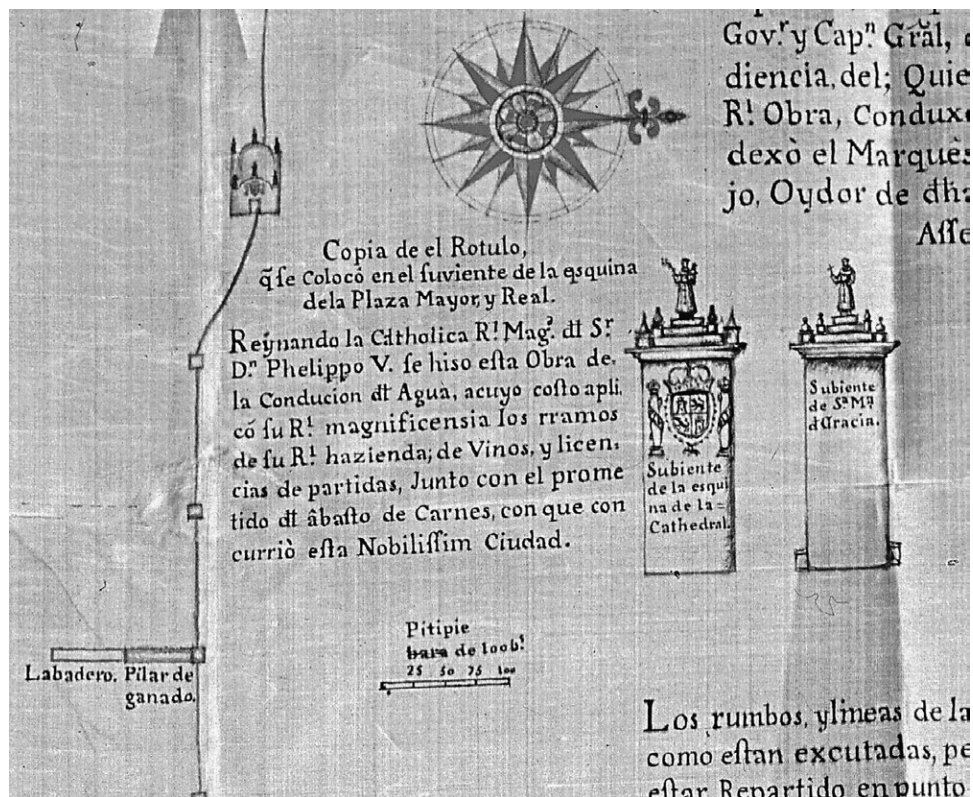 Gov.r y Cap.n Grãl,
diencia, del; Quie
R.l Obra, Conduxe
dexò el Marquès
jo, Oydor de dha
Aſſe
Copia de el Rotulo,
q̃ ſe Colocó en el ſuviente de la esquina
de la Plaza Mayor, y Real.
Reÿnando la Catholica R.l Mag.d dl S.r
D.n Phelippo V. ſe hiso eſta Obra de.
la Conducion dl Agua, acuyo coſto apli.
có ſu R.l magnificensia los rramos
de ſu R.l hazienda; de Vinos, y licen,
cias de partidas, Junto con el prome
tido dl âbaſto de Carnes, con que con
curriò eſta Nobiliſſim Ciudad.
Subiente
de la esqui
na de la =
Cathedral.
Subiente
de S.ta M.a
d Gracia.
Pitipie
bara de 100b.s
25 50 75 100
Labadero. Pilar de
ganado.
Los rumbos, ylineas de la
como eſtan excutadas, pe
eſtar Repartido en punto